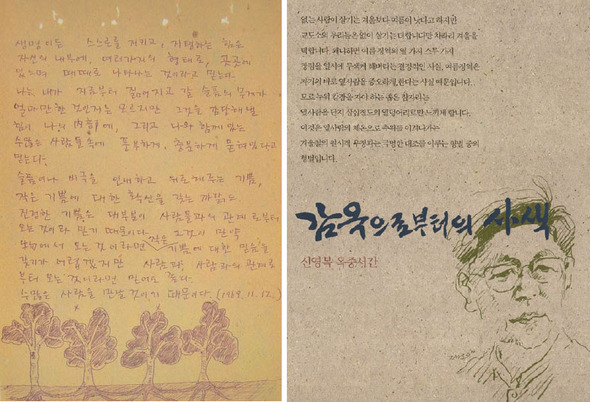 스스로를 지키고, 지탱하는 힘은
자신의 내부에, 여러가지의 형태로, 곳곳에
있으며 때때로 나타나는 것이라고 믿는다.
나는 내가 지금부터 짊어지고 갈 슬픔의 무게가
얼마만한 것인지는 모르지만 그것을 감당해낼
힘이 나의 그리고 나와 함께 있는
수많은 사람들속에 풍부하게, 충분하게 묻혀있다고
믿는다.
슬픔이나 비극을 인내하고 위로해주는 기쁨,
작은 기쁨에 대한 확신을 갖는 까닭도
진정한 기쁨은 대부분이 사람들과의 관계로부터
오는 것이라 믿기 때문이다. 그것이 만약
에서 오는 것이라면 작은 기쁨에 대한 믿음을
갖기가 어렵겠지만 사람과 사람과의 관계로
부터 오는 것이라면 믿어도 좋다.
수많은 사람을 만날 것이기 때문이다 (1969.11.12.)
없는 사람이 살기는 겨울보다 여름이 낫다고 하지만
교도소의 우리들은 없이 살기는 더합니다만 차라리 겨울을
택합니다. 왜냐하면 여름 징역의 열 가지 스무 가지
장점을 일시에 무색케 해버리는 결정적인 사실, 여름징역은
자기의 바로 옆사람을 증오하게 한다는 사실 때문입니다.
모로 누워 칼잠을 자야 하는 좁은 잠자리는
옆사람을 단지 삼십칠도의 열덩어리로만 느끼게 합니다.
이것은 옆사람의 체온으로 추위를 이겨나가는
겨울철의 원시적 우정과는 극명한 대조를 이루는 형벌 중의
형벌입니다.
감옥으로부터의 사색
신영복 옥중서간